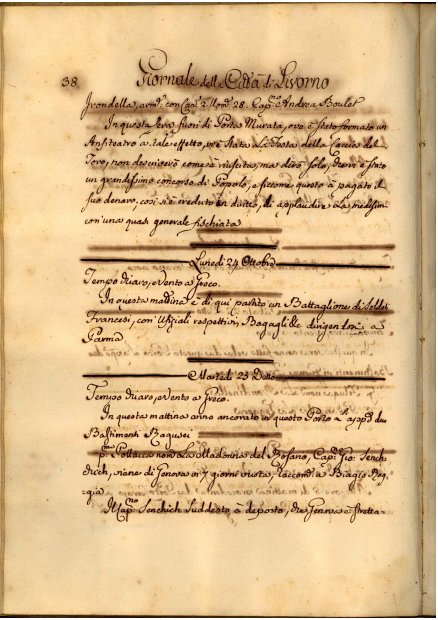 38 Giornale della Città di Livorno
Irondella, arm: con Can: 2. Uom: 28. Cap:no Andrea Boulet
In questa sera fuori di Porta Murata, ove è stato formato un
Anfiteatro a tale effetto, vi è stata la Festa della Caccia del
Toro, non descriverò come è riuscita, ma dirò solo, che vi è stato
un grandissimo concorso di Popolo, e siccome questo à pagato il
suo denaro, così si è creduto in diritto, di applaudire la medesima
con una quasi generale fischiata
Lunedì 24 Ottobre
Tempo chiaro, e Vento a Greco.
In questa mattina è di qui partito un Battaglione di Soldati
Francesi, con Ufiziali respettivi, Bagagli &c dirigendosi a
Parma.
Martedì 25 Detto
Tempo chiaro, e Vento a Greco.
In questa mattina anno ancorato in questo Porto l'appo du
Bastimenti Raqusei
p:mo Pollacca nom: la Madonna del Rosario, Cap: Gio:
viene di Genova in 7 giorni vuota, raccom: a Biagio
Il Cap:no Senchich suddetto à deposto, che Genova è stretta-